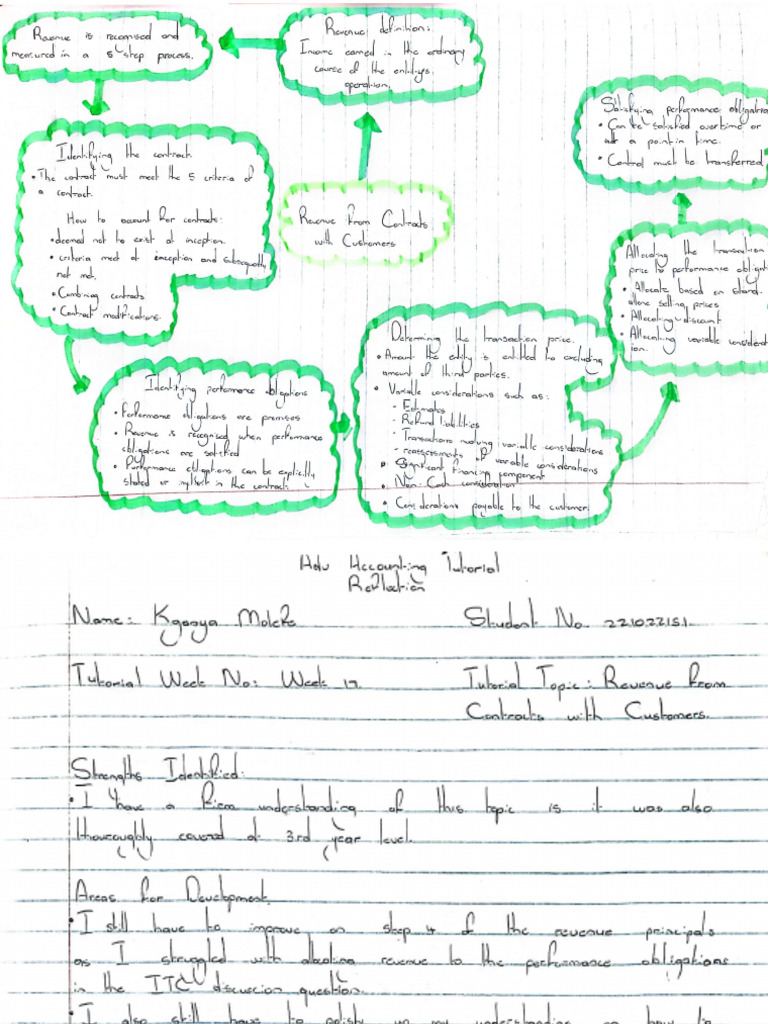 Revenue from Contracts
with Customers
Revenue definition:
Income earned in the ordinary
course of the entitys
operation.
Revenue is recognised and
measured in a 5 step process.
Identifying the contract
• The contract must meet the 5 criteria of
a contract.
How to account for contracts:
• deemed not to exist at inception.
• criteria met at inception and subsequently
not met.
• Combining contracts
• Contract modifications.
Identifying performance obligations
• Performance obligations are promises
• Revenue is recognised when performance
obligations are satisfied
• Performance obligations can be explicitly
stated or implicit in the contract.
Determining the transaction price.
• Amount the entity is entitled to excluding
amount of third parties.
• Variable considerations such as:
- Estimates
- Refund liabilities
- Transactions involving variable considerations
- reassessments of variable considerations
• Significant financing component
• Non-Cash consideration
• Considerations payable to the customer.
Allocating the transaction
price to performance obligati
• Allocate based on stand-
alone selling prices
• Allocating discount
• Allocating variable considerat
ion.
Satisfying performance obligation
• Can be satisfied overtime or
at a point in time.
• Control must be transferred
Adv Accounting Tutorial
Reflection
Name: Kgaogya Moleke Student No. 221022151.
Tutorial Week No: Week 17. Tutorial Topic: Revenue from
Contracts with Customers.
Strengths Identified:
• I have a firm understanding of this topic is it was also
thouroughly covered at 3rd year level.
Areas for Development.
• I still have to improve on step 4 of the revenue principals
as I struggled with allocating revenue to the performance obligations
in the ITC discussion question.
• I also still have to polish up my understanding on how to